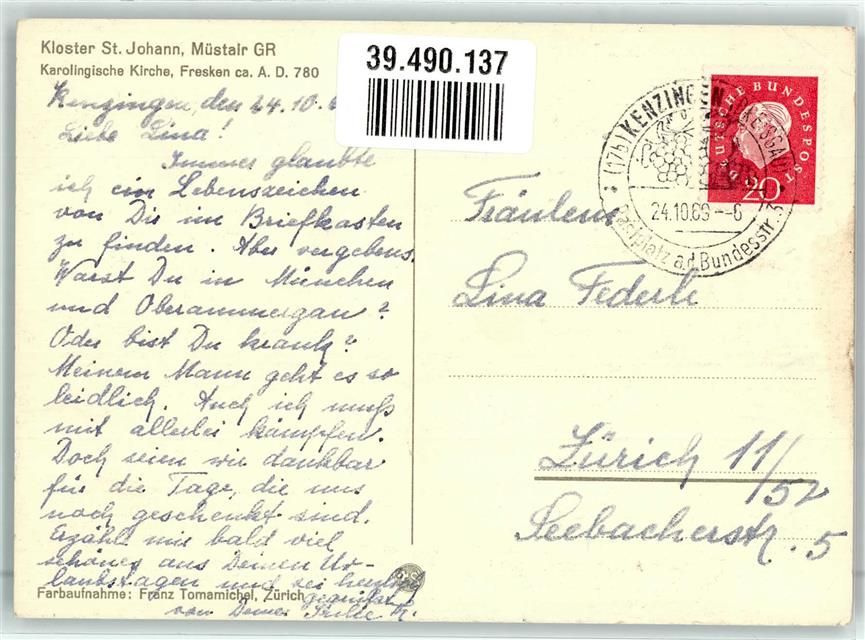 Kloster St. Johann, Müstair GR
Karolingische Kirche, Fresken ca. A. D. 780
39.490.137
Kenzingen, den 24.10.
Liebe Lina!
Immer glaubte
ich ein Lebenszeichen
von Dir im Briefkasten
zu finden. Aber vergebens.
Warst Du in München
und Oberammergau?
Oder bist Du krank?
Meinem Mann geht es so
leidlich. Auch ich muß
mit allerlei kämpfen.
Doch seien wir dankbar
für die Tage, die uns
noch geschenkt sind.
Erzähl mir bald viel
schönes aus Deinen Ur-
laubstagen und sei
gegrüßt
von Deiner
Farbaufnahme: Franz Tomamichel, Zürich
(17b) KENZINGEN
24.10.60--6
a.d. Bundesstr. 3
DEUTSCHE BUNDESPOST
20
Fräulein
Lina Federle
Zürich 11/52
Seebacherstr. 5